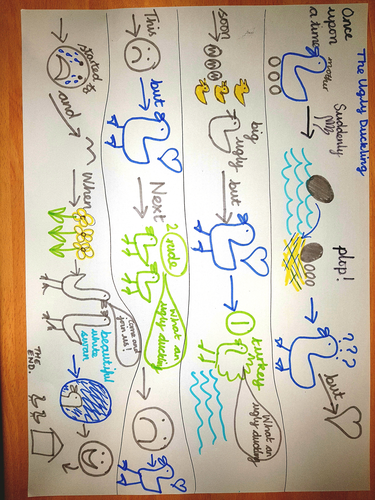 The Ugly Duckling
Once
upon
a time
mother
Suddenly
plop!
???
but
soon
big
ugly
but
1
turkey
What an
ugly duckling
This
but
Next
2 rude
What an
ugly duckling
started to
and
When
come and
join us!
beautiful
white
swan
THE
END.